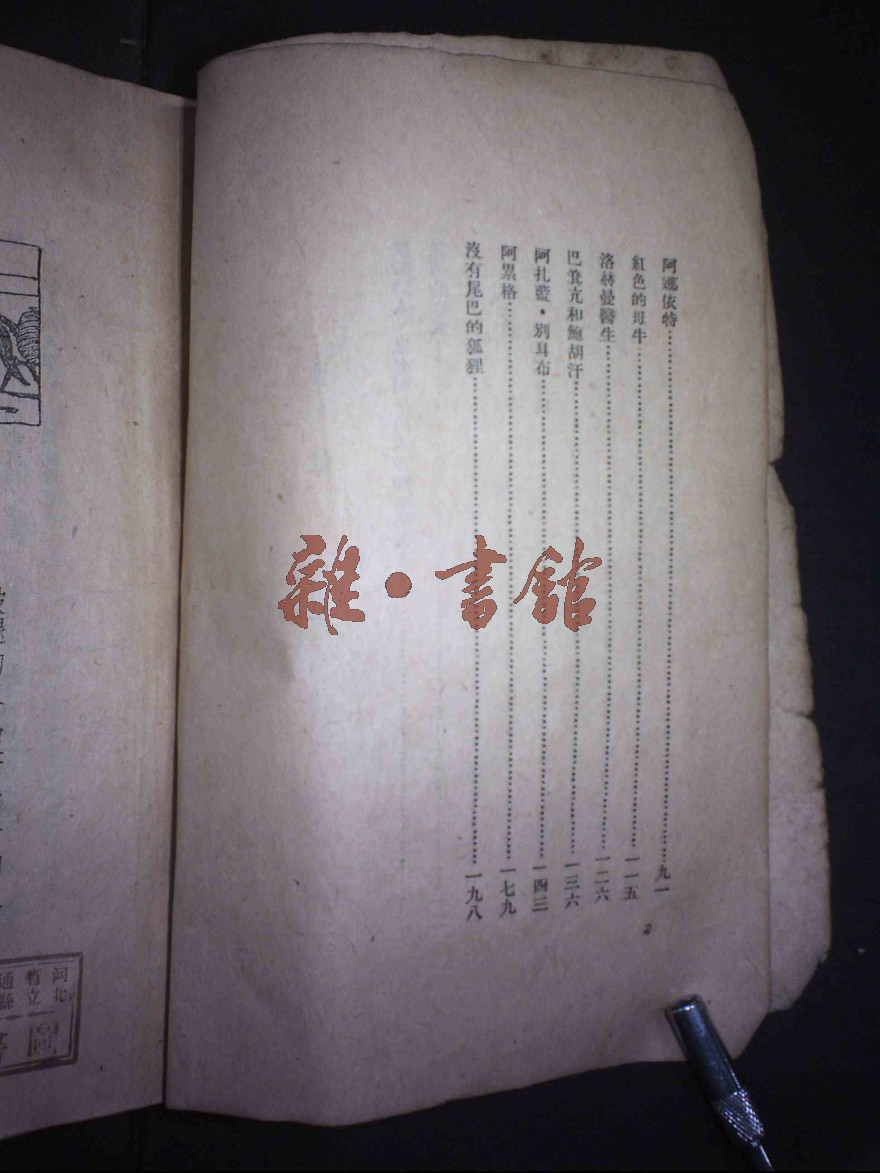 阿娜依特⋯⋯九一
紅色的母牛⋯⋯一一五
洛赫曼醫生⋯⋯一二六
巴簊亢和鮑胡汗⋯⋯一三六
阿扎藍·別耳布⋯⋯一四三
阿累格⋯⋯一七九
沒有尾巴的狐狸⋯⋯一九八
2
雜·書館
河北
省立
通縣
圖